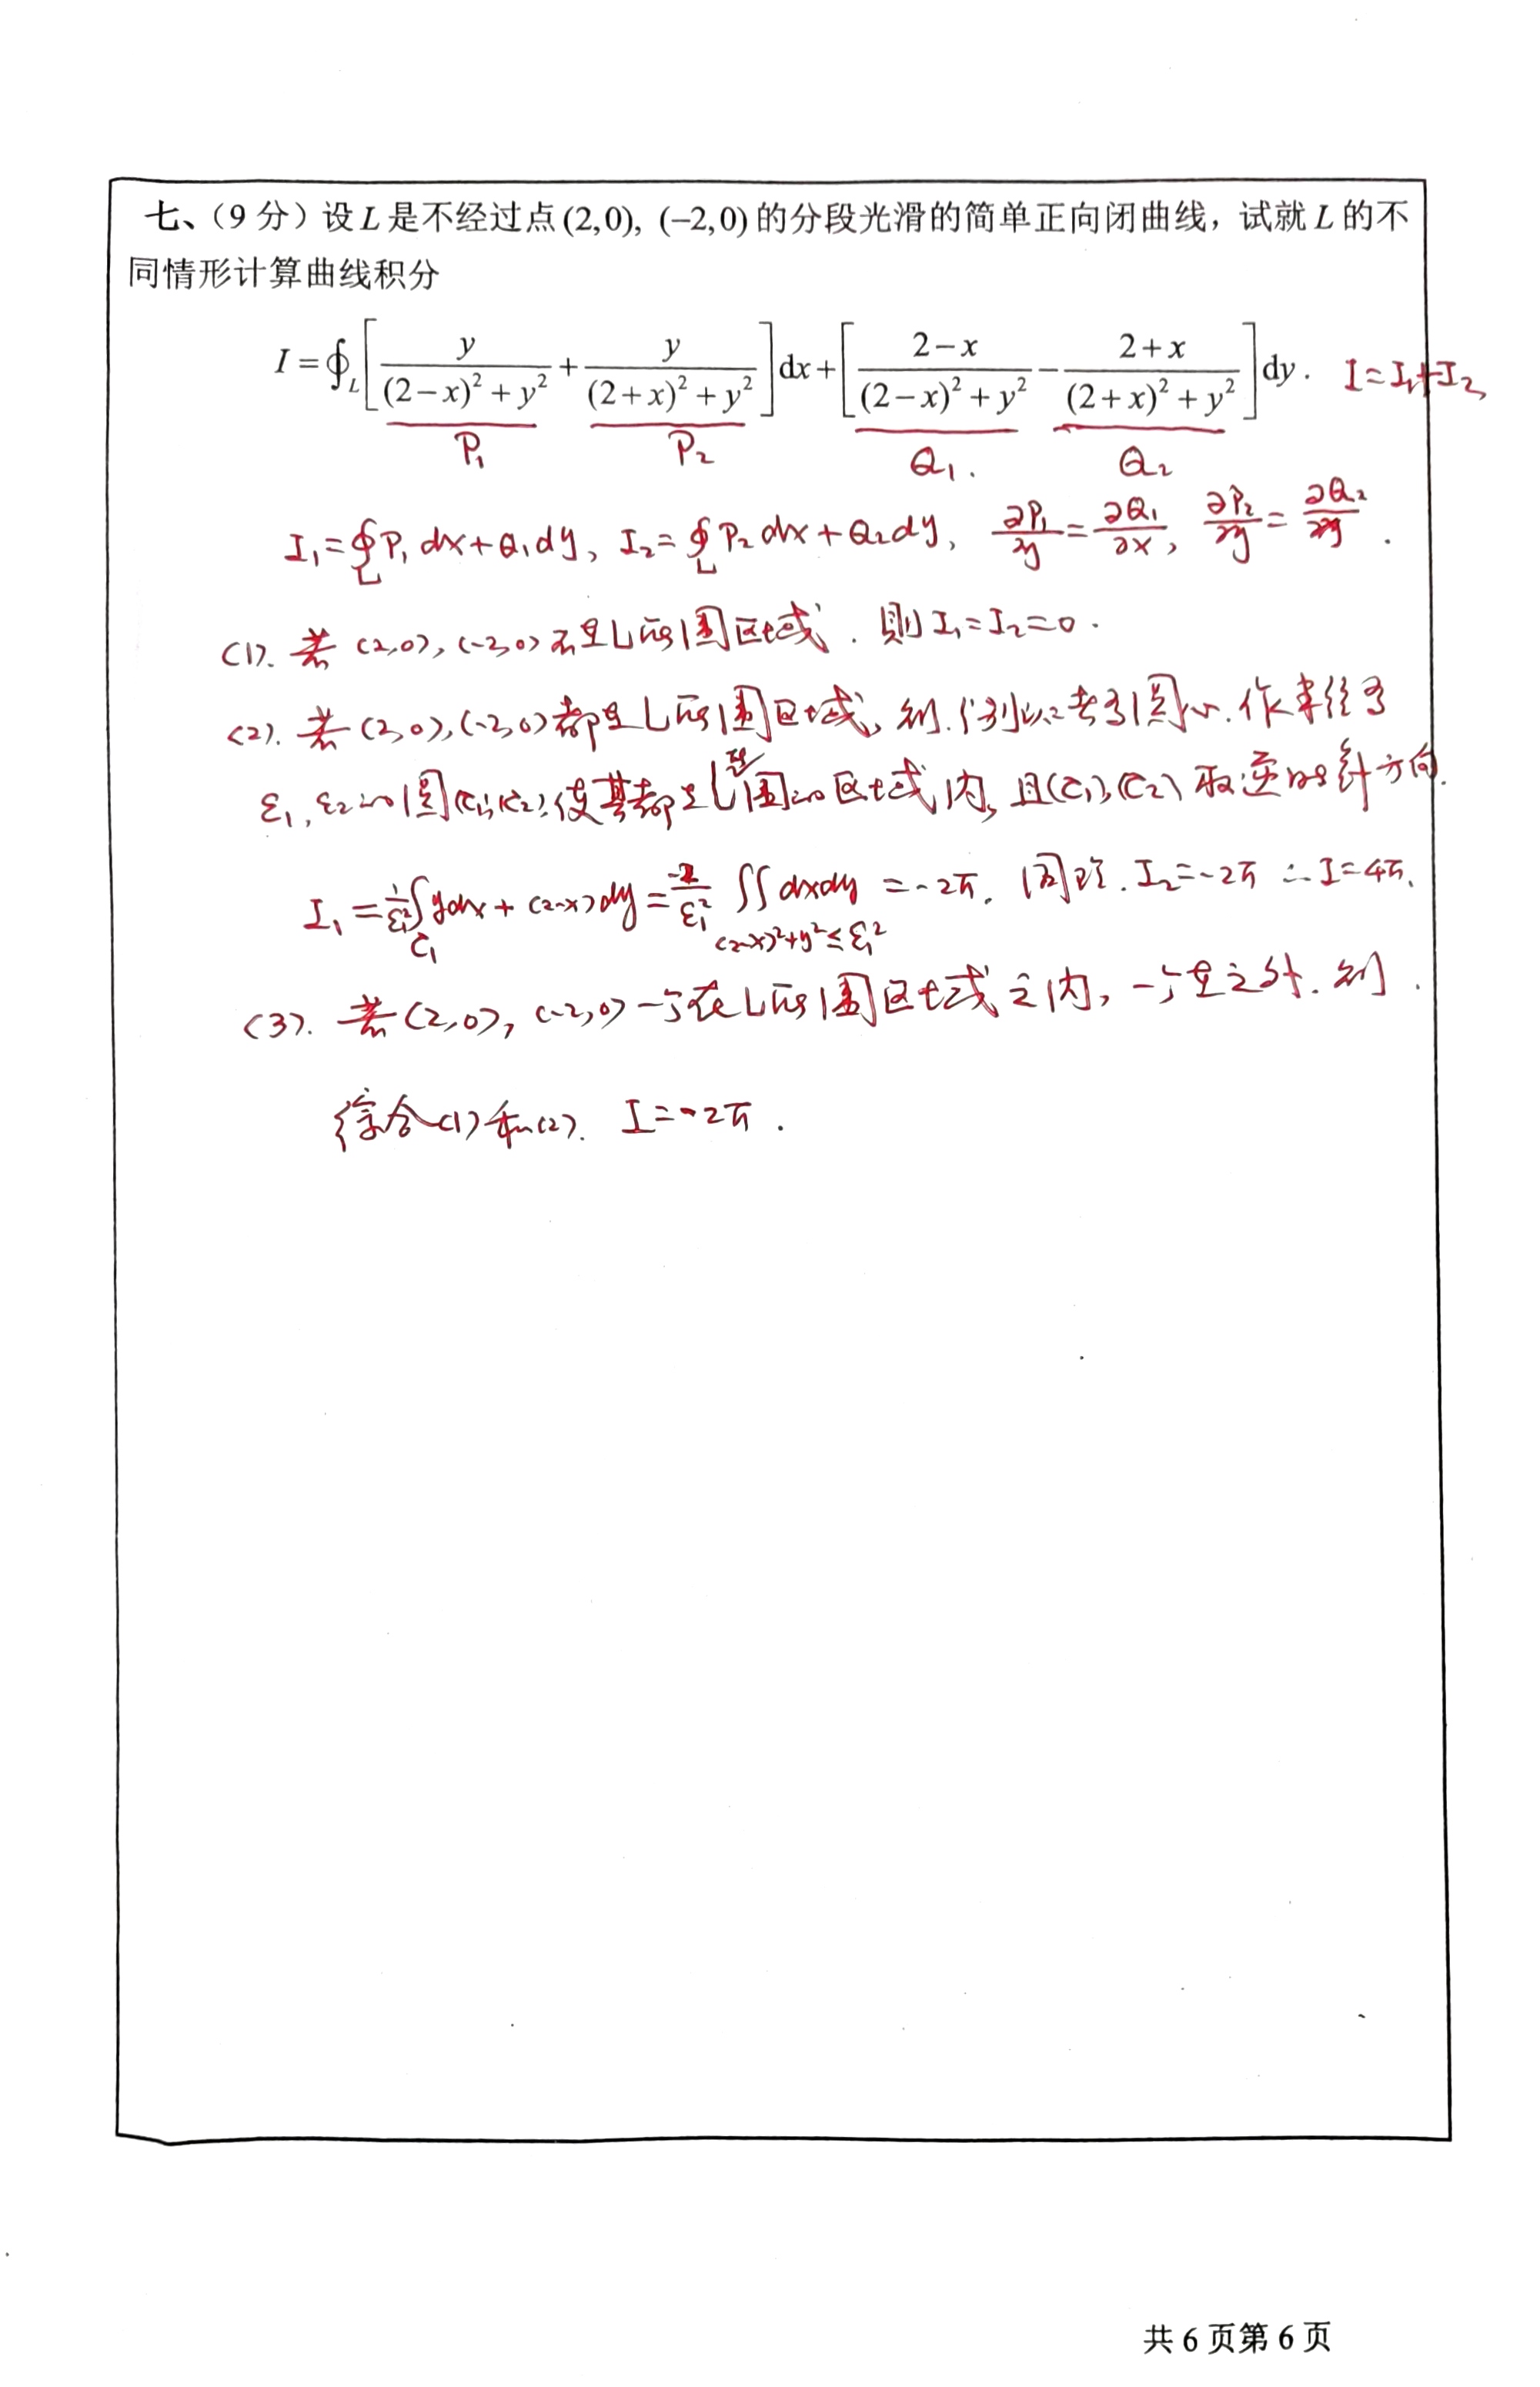 七、（9 分）设 L 是不经过点 (2,0), (−2,0) 的分段光滑的简单正向闭曲线，试就 L 的不
同情形计算曲线积分
I = ∮_L [ y/((2−x)²+y²) + y/((2+x)²+y²) ] dx + [ (2−x)/((2−x)²+y²) − (2+x)/((2+x)²+y²) ] dy . I=I₁+I₂
P₁ P₂ Q₁. Q₂
I₁=∮_L P₁dx+Q₁dy, I₂=∮_L P₂dx+Q₂dy, ∂P₁/∂y=∂Q₁/∂x, ∂P₂/∂y=∂Q₂/∂y.
(1). 若 (2,0), (-2,0) 不在L所围区域. 则 I₁=I₂=0.
(2). 若 (2,0), (-2,0) 都在L所围区域, 则. 分别以二者为圆心. 作半径为
ε₁, ε₂的圆(C₁),(C₂), 使其都在L所围的区域内, 且(C₁),(C₂)取逆时针方向.
I₁=1/ε₁² ∫_{C₁} ydx+(2-x)dy = -2/ε₁² ∬_{(2-x)²+y²≤ε₁²} dxdy = -2π. 同理. I₂=-2π ∴I=4π.
(3). 若 (2,0), (-2,0) 一个在L所围区域之内, 一个在之外. 则.
综合(1)和(2). I=-2π.
共 6 页第 6 页